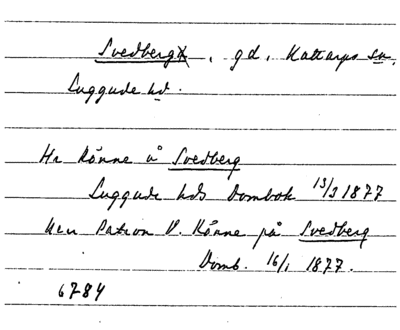 Svedberg, gd, Kattarps sn,
Luggude hd.
Hr Rönne å Svedberg
Luggude hds Dombok 13/3 1877
Herr Patron V. Rönne på Svedberg
Domb. 16/1 1877.
6784